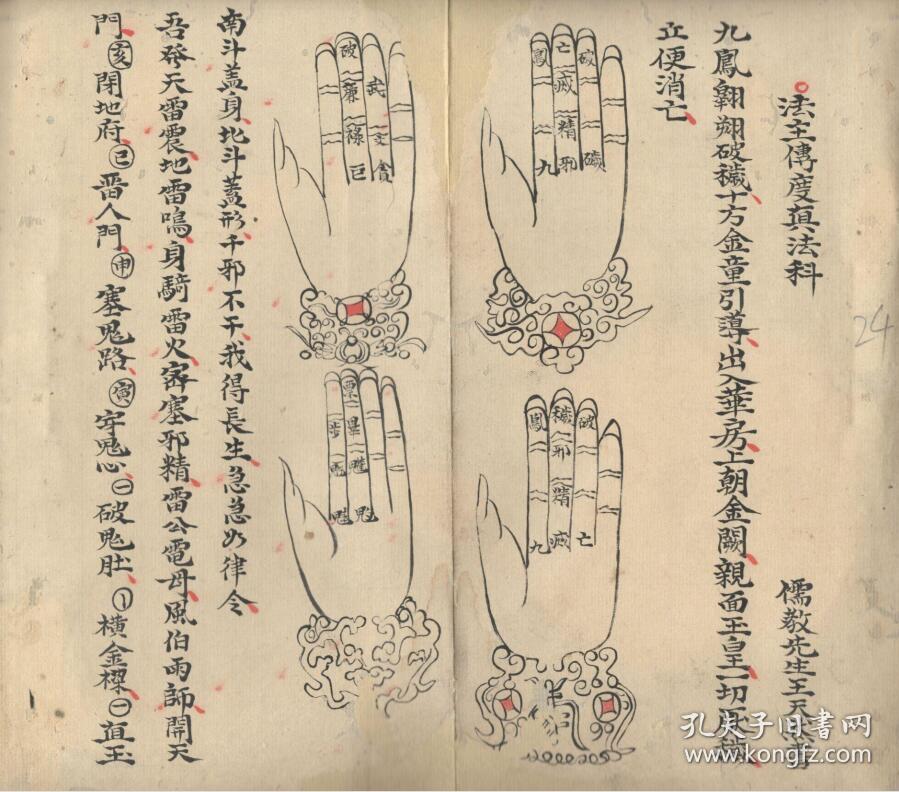 法主傳度真法科
儒教先生王
九鳳翱翔破穢十方金童引導出入華房上朝金闕親面玉皇一切厭穢
立便消亡
鳳 亡 破
滅
精
九 邪 穢
鳳 穢 破
邪
精
九 滅 亡
破
廉 武
祿 文
巨 貪
南斗盖身北斗蓋形千邪不干我得長生急急如律令
吾發天雷震地雷鳴身騎雷火審塞邪精雷公電母風伯雨師開天
門亥閉地府己晋人門申塞鬼路寅穿鬼心㊀破鬼肚橫金樑㊀直玉
24
孔夫子旧书网
www.kongfz.com